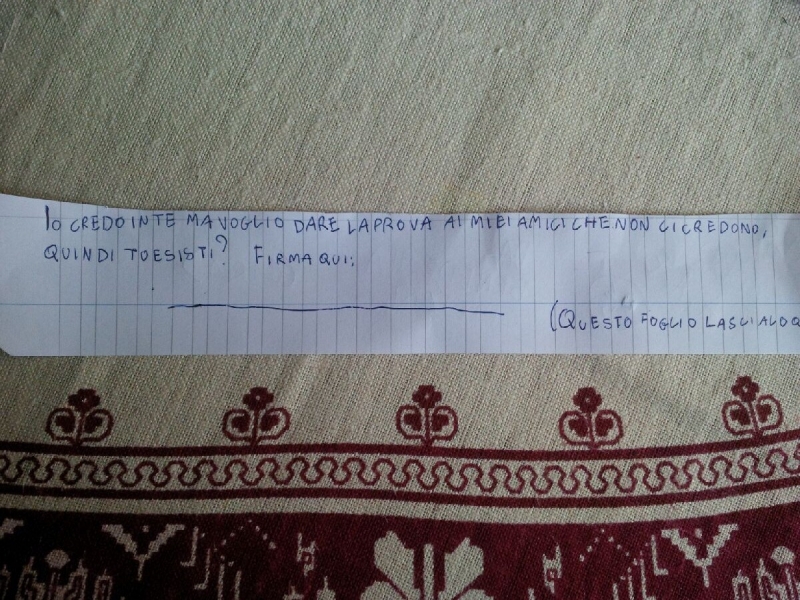 IO CREDO IN TE MA VOGLIO DARE LA PROVA AI MIEI AMICI CHE NON CI CREDONO,
QUINDI TU ESISTI? FIRMA QUI:
(QUESTO FOGLIO LASCIALO Q